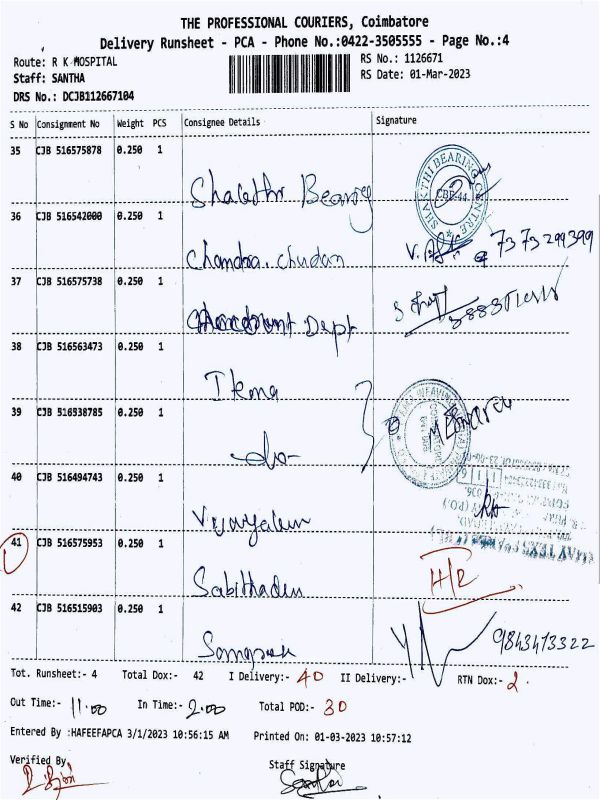 THE PROFESSIONAL COURIERS, Coimbatore
Delivery Runsheet - PCA - Phone No.:0422-3505555 - Page No.:4
Route: R K HOSPITAL
RS No.: 1126671
Staff: SANTHA
RS Date: 01-Mar-2023
DRS No.: DCJB112667104
S No Consignment No Weight PCS Consignee Details Signature
35 CJB 516575878 0.250 1
SHAKTHI BEARING CENTRE
36 CJB 516542000 0.250 1
Chandra. chudan 7373299399
37 CJB 516575738 0.250 1
Dept
38 CJB 516563473 0.250 1
39 CJB 516538785 0.250 1
-do-
40 CJB 516494743 0.250 1
41 CJB 516575953 0.250 1
42 CJB 516515903 0.250 1
9843473322
Tot. Runsheet:- 4 Total Dox:- 42 I Delivery:- 40 II Delivery:- RTN Dox:- 2
Out Time:- 11.00 In Time:- 2.00 Total POD:- 30
Entered By :HAFEEFAPCA 3/1/2023 10:56:15 AM Printed On: 01-03-2023 10:57:12
Verified By
Staff Signature